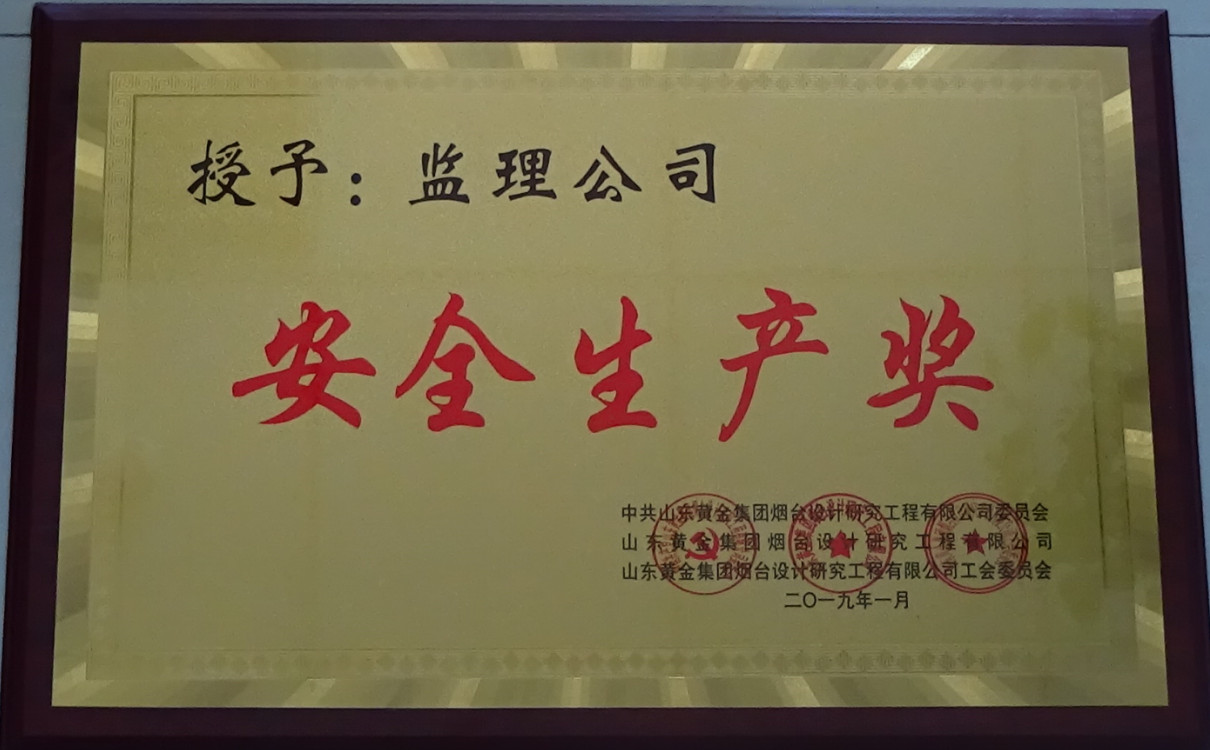 授予：监理公司
安全生产奖
中共山东黄金集团烟台设计研究工程有限公司委员会
山东黄金集团烟台设计研究工程有限公司
山东黄金集团烟台设计研究工程有限公司工会委员会
二〇一九年一月